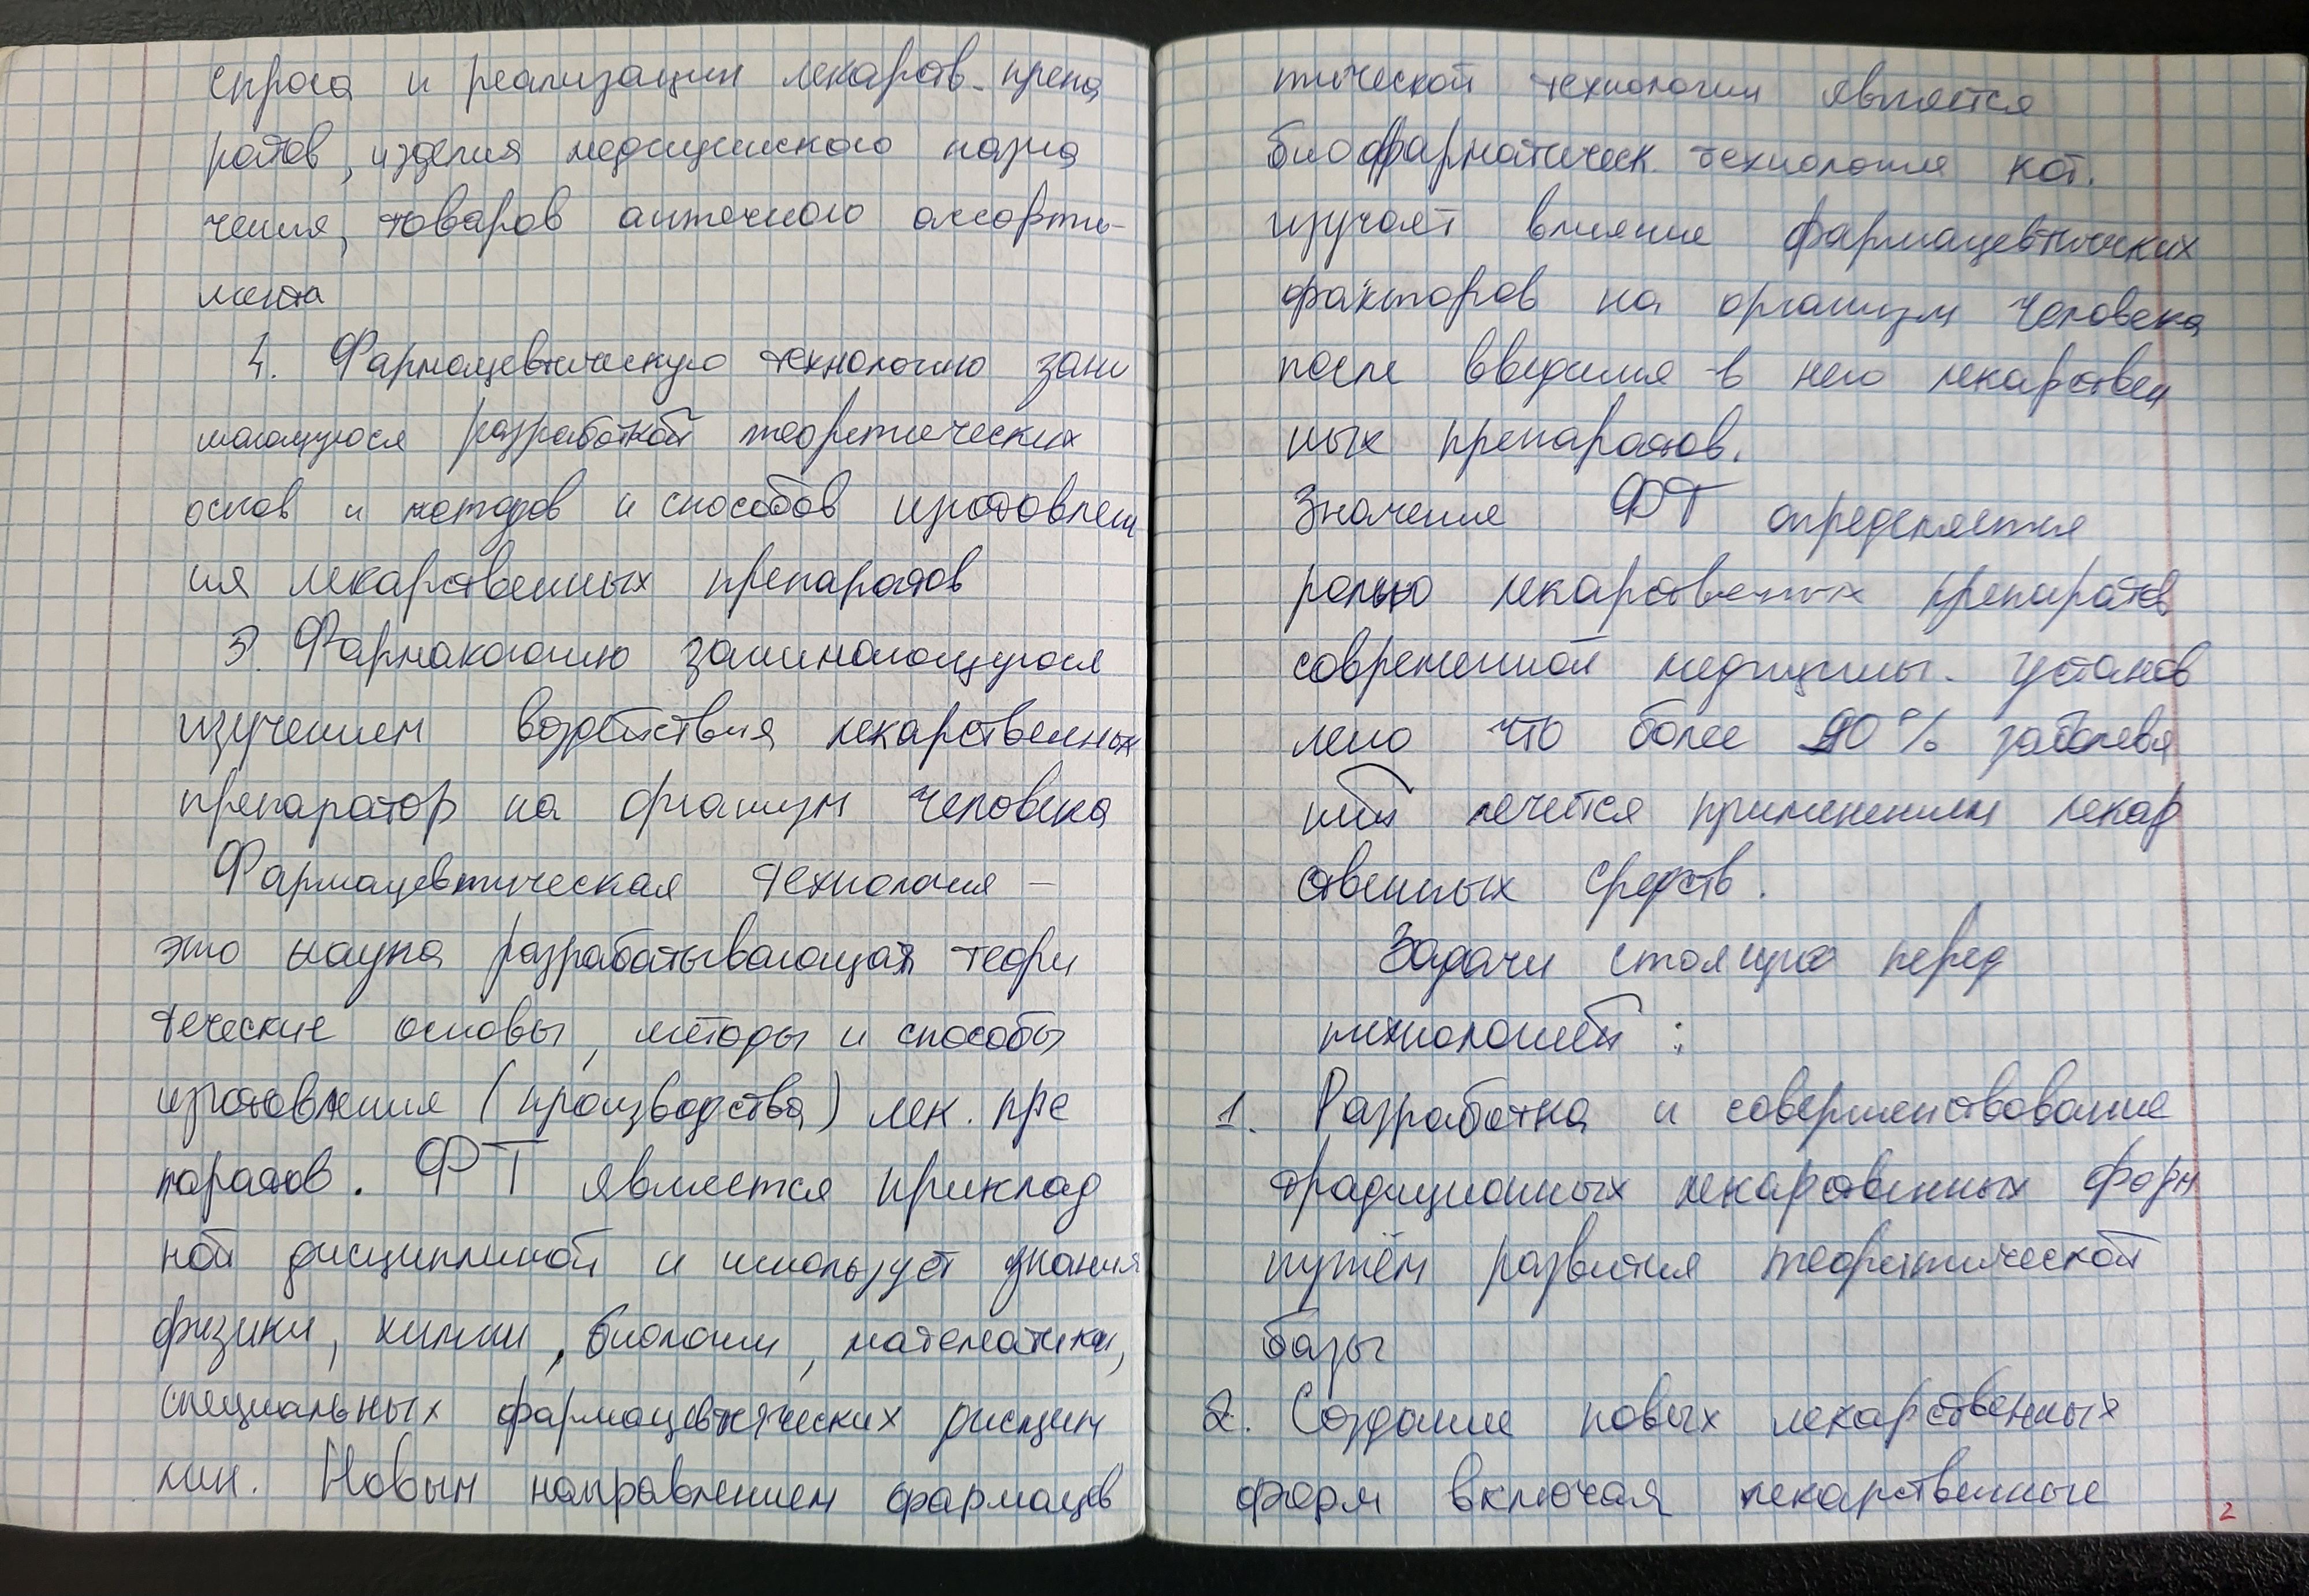 спроса и реализации лекарств. препа
ратов, изделия медицинского назна
чения, товаров аптечного ассорти-
мента
4. Фармацевтическую технологию зани
мающуюся разработкой теоретических
основ и методов и способов изготовлен
ия лекарственных препаратов
5. Фармакологию занимающуюся
изучением воздействия лекарственных
препаратор на организм человека
Фармацевтическая технология –
это наука разрабатывающая теори
теческие основы, методы и способы
изготовления (производства) лек. пре
паратов. ФТ является приклад
ной дисциплиной и использует знания
физики, химии, биологии, математики,
специальных фармацевтических дисцип
лин. Новым направлением фармацев
тической технологии является
биофарматическ. технология кот.
изучает влияние фармацевтических
факторов на организм человека
после введения в него лекарствен
ных препаратов.
Значение ФТ определяется
ролью лекарственных препаратов
современной медицины. установ
лено что более 90% заболева
ний лечется применением лекар
ственных средств.
Задачи стоящие перед
технологией:
1. Разработка и совершенствование
традиционных лекарственных форм
путём развития теоретической
базы
2. Создание новых лекарственных
форм включая лекарственные
2